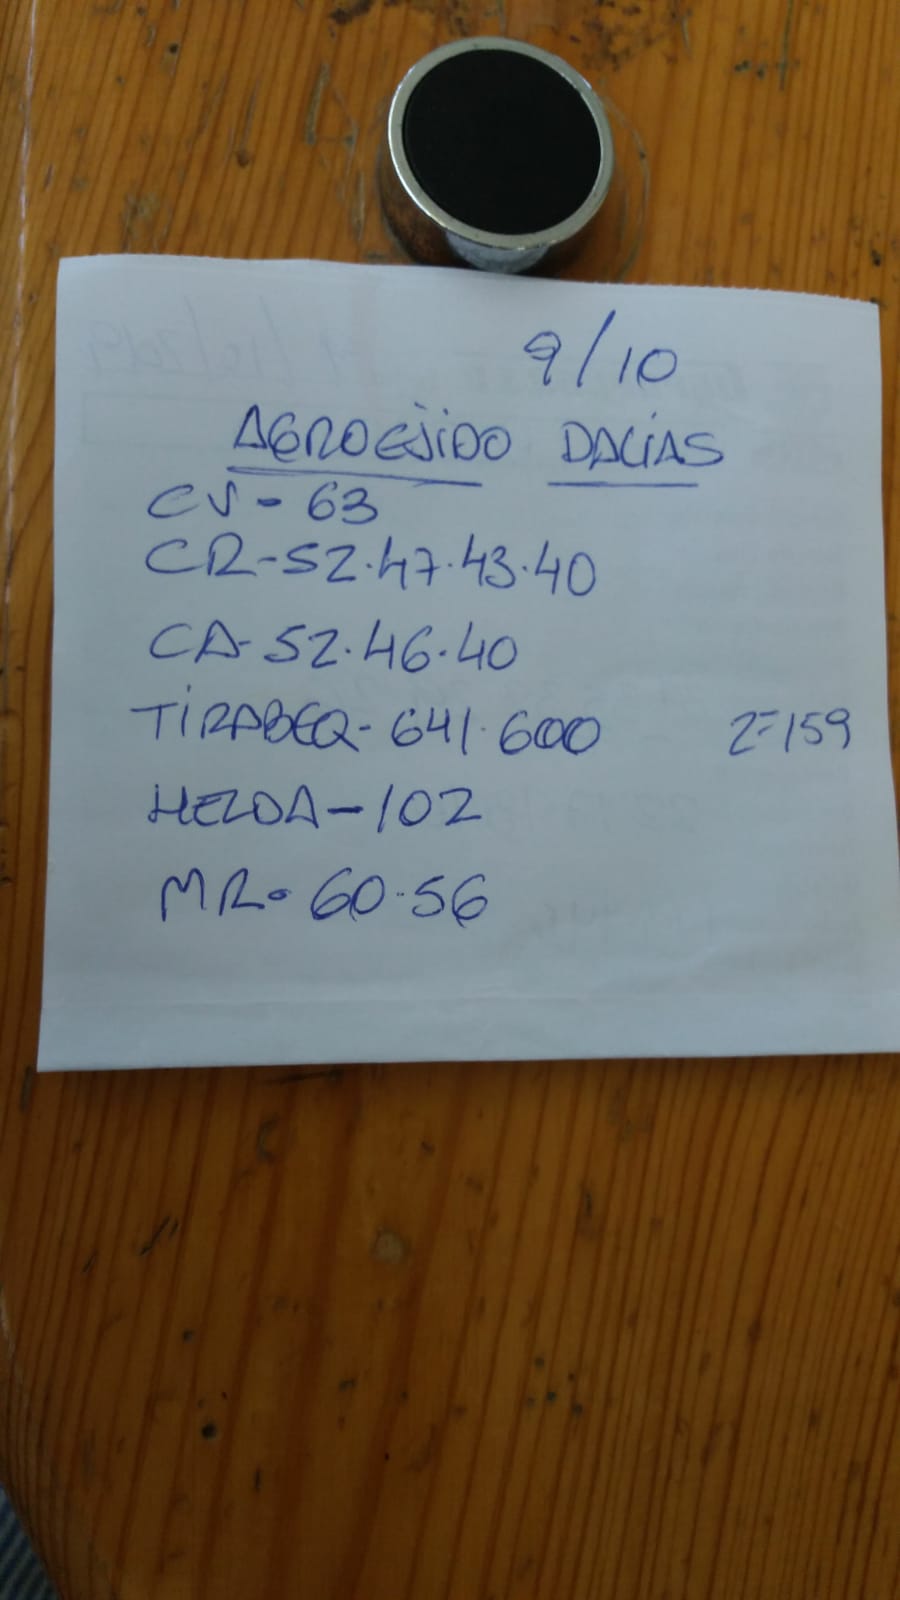 9/10
AGROEJIDO DALÍAS
CV - 63
CR - 52.47.43.40
CA - 52.46.40
TIRABEQ - 641.600 2ª 159
MEZDA - 102
MR - 60.56